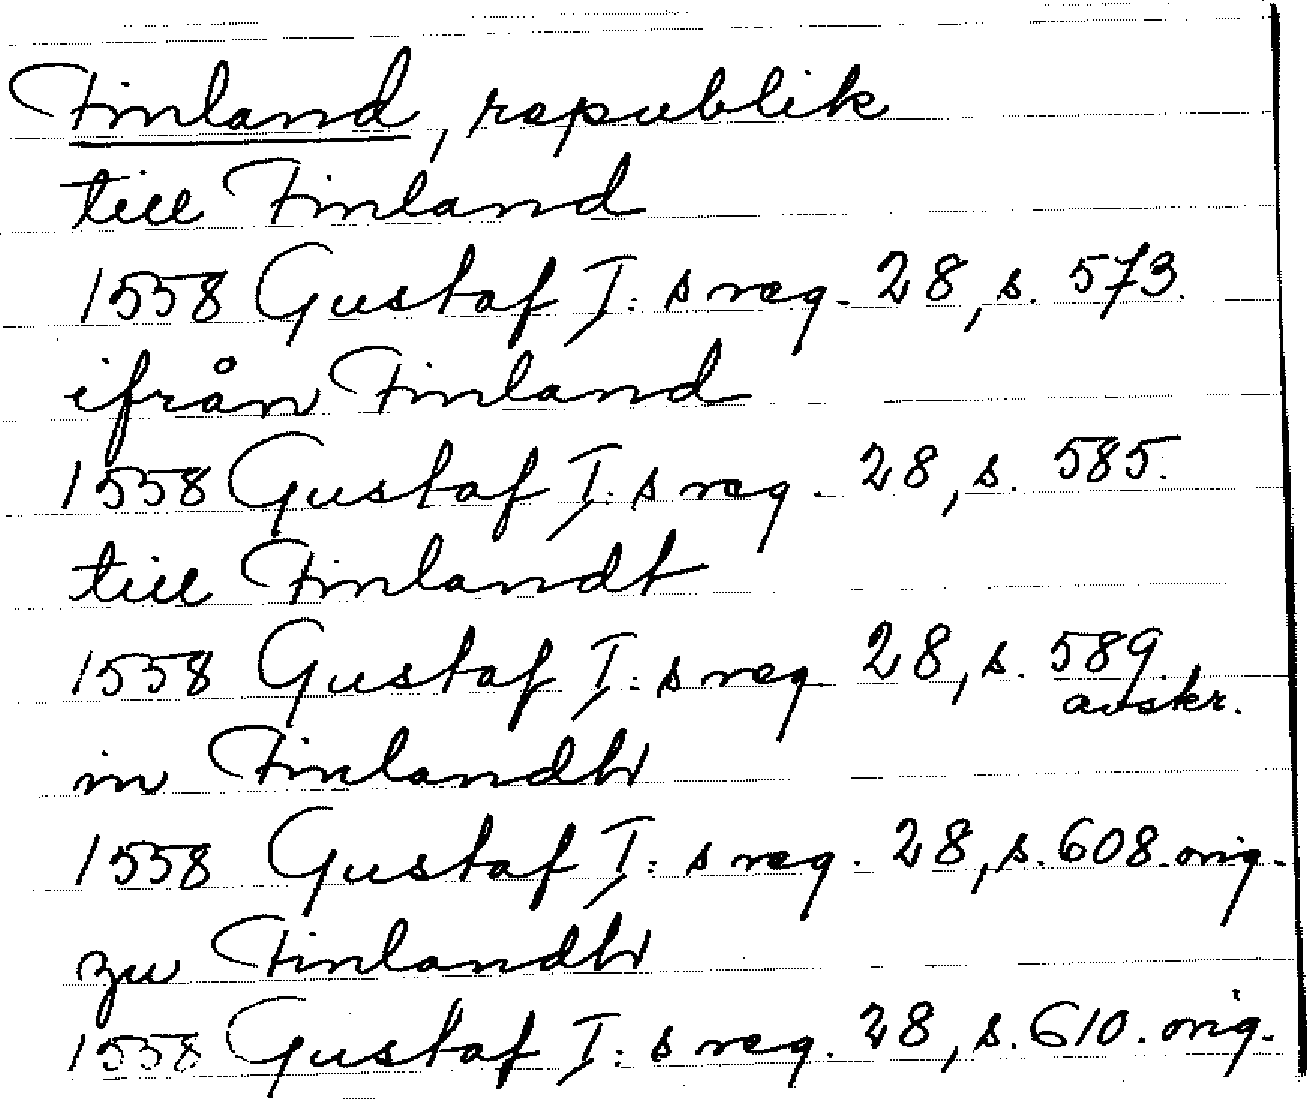 Finland, republik
till Finland
1558 Gustaf I:s reg. 28, s. 573.
ifrån Finland
1558 Gustaf I:s reg. 28, s. 585.
till Finlandt
1558 Gustaf I:s reg. 28, s. 589.
avskr.
in Finlandh
1558 Gustaf I:s reg. 28, s. 608. orig.
zu Finlandh
1558 Gustaf I:s reg. 28, s. 610. orig.